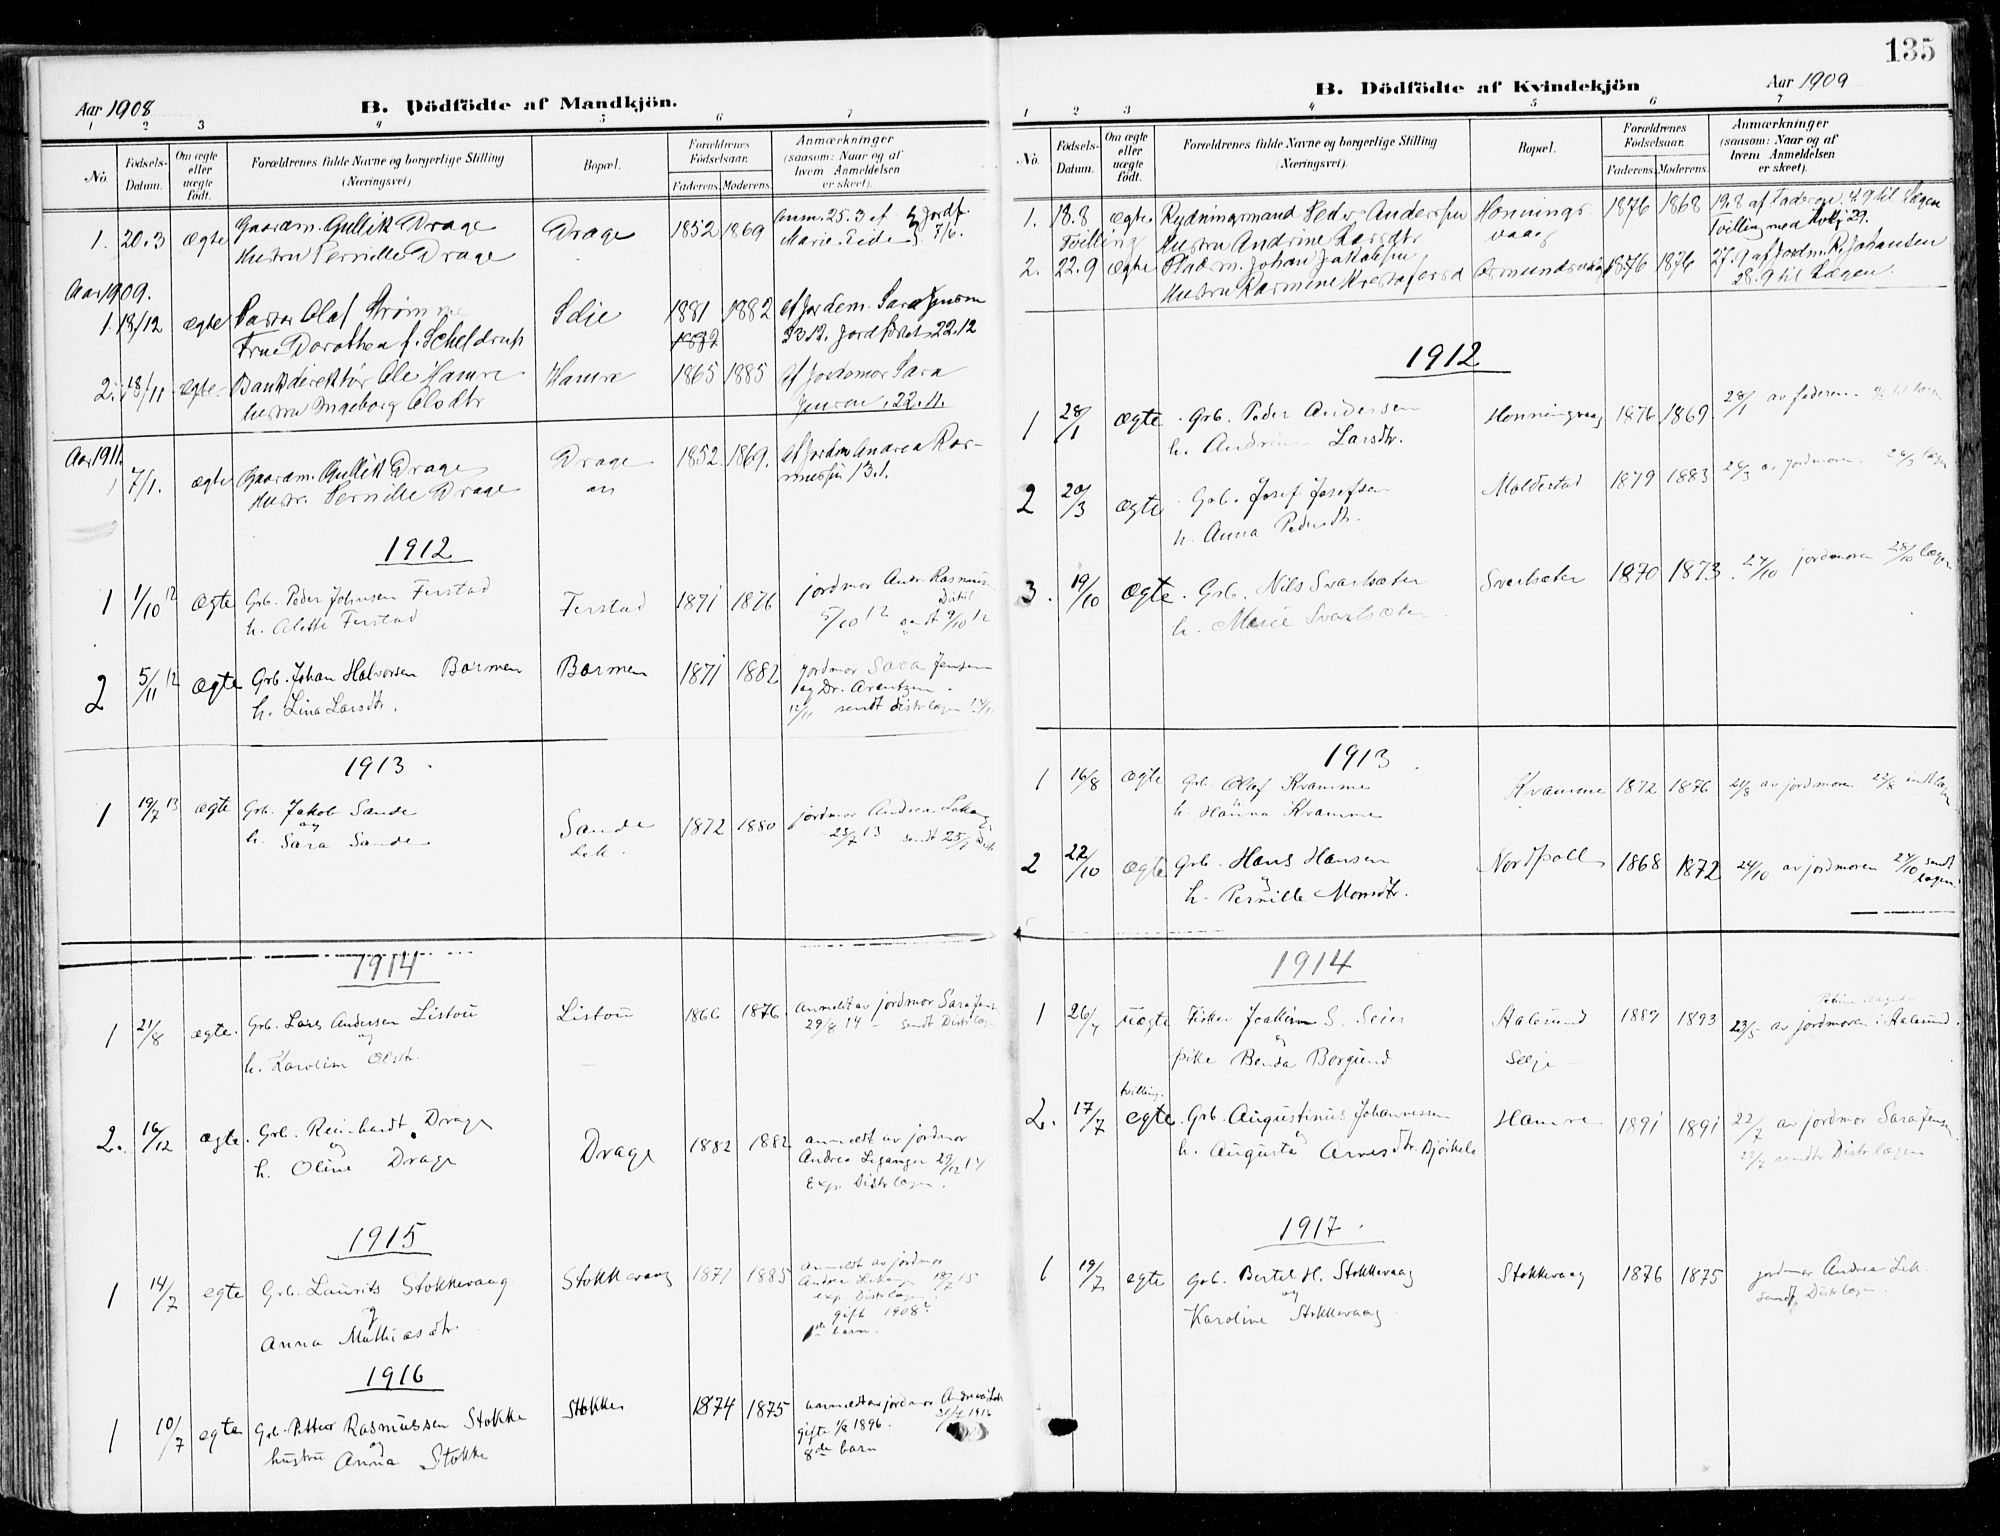 Aar 1908
B. Dödfödte af Mandkjön.
1 2 3 4 5 6 7
No.
Fødsels-Datum.
Om ægte eller uægte født.
Forældrenes fulde Navne og borgerlige Stilling (Næringsvei)
Bopæl.
Forældrenes Fødselsaar.
Faderens. Moderens.
Anmærkninger (saasom: Naar og af hvem Anmeldelsen er skeet).
1. 20.3 ægte Gaardm. Gullik Drage Drage 1852 1869 anm. 25.3 af
Hustru Pernille Drage Marie Eide 7/6.
Aar 1909.
1. 18/12 ægte Pastor Olaf Selje 1881 1882 af Jordem. Sara Jensen
Frue Dorothea f. Scheldrup 1882 22.12
2. 18/11 ægte Bankdirektør Ole Hamre Hamre 1865 1885 af Jordemor Sara
hustru Ingeborg Olsdtr Jensen. 22.11.
Aar 1911.
1 7/1. ægte Gaardm. Gullik Drage Drage 1852 1869. af Jordm Andrea Ras-
Hustr. Pernille Drage 13.1.
1912
1 1/10 12 ægte Grb. Peder Johnsen Ferstad Ferstad 1871 1876 jordmor Andr. Rasmuss
h. Alette Ferstad 5/10 12 sendt 9/10 12
2 5/11 12 ægte Grb. Johan Halvorsen Barmen Barmen 1871 1882 jordmor Sara Jensen
h. Lina Larsdtr. og Dr. Arentzen.
12/11 sendt distrlægen
1913
1 19/7 13 ægte Grb. Jakob Sande Sande 1872 1880 jordmor Andrea
og
h. Sara Sande 23/7 13 sendt 25/7
1914
1 21/8 ægte. Grb. Lars Andersen Listou Listou 1866 1876. anmeldt av jordmor Sara Jensen
og 29/8 14 - sendt Distrlægen
h. Karoline Olsdtr.
2. 16/12 ægte. Grb. Reinhardt Drage Drage 1882 1882 anmeldt av jordmor
og Andrea Leganger 29/12 14
h. Oline Drage Exp. Distrlægen.
1915
1 14/7 egte Grb. Laurits Stokkevaag Stokkevaag 1871 1885 anmeldt av jordmor
og Andrea 19/7 15
Anna Mathiasdtr. exp. Distrlægen.
gift 1908
1ste barn.
1916
1 10/7 egte Grb. Petter Rasmussen Stokke Stokke 1874 1875 anmeldt av jordmor Andrea Lek.
og gifte 1/8 1896. 31/7 1916
hustru Anna Stokke 8de barn
135
B. Dödfödte af Kvindekjön
Aar 1909
1 2 3 4 5 6 7
No.
Fødsels-Datum.
Om ægte eller uægte født.
Forældrenes fulde Navne og borgerlige Stilling (Næringsvei).
Bopæl.
Forældrenes Fødselsaar.
Faderens. Moderens.
Anmærkninger (saasom: Naar og af hvem Anmeldelsen er skeet).
1. 18.8 ægte Rydningsmand Peder Anderssen Honnings- 1876 1868 19.8 af Faderen. 4.9 til Lægen
Tvilling Hustru Andrine Larsdtr vaag Tvilling med
2. 22.9 ægte Pladsm. Johan Jakobsen 1876 1876 27.9 af Jordm. R. Johansen
Hustru 28.9 til Lægen.
1912
1 28/1 ægte. Grb. Peder Andersen Honningvaag 1876 1869. 28/1 av faderen.
h. Andrine Larsdtr.
2 20/3 ægte Grb. Josef Josefsen Moldestad 1879 1883 av jordmoren. lægen
h. Anna Pedersdtr.
3. 19/10 ægte. Grb. Nils Svartsæter Svartsæter 1870 1873. 24/10 jordmoren 28/10 lægen
h. Marie Svartsæter.
1913
1 16/8 ægte Grb. Olaf Kvamme Kvamme 1872 1876 21/8 av jordmoren 22/8
h. Hanna Kvamme
2 22/10 ægte Grb. Hans Hansen Nordpoll 1868 1872 24/10 av jordmoren 24/10 sendt lægen
og
h. Pernille Monsdtr.
1914
1 26/4 uægte Fisker Joakim S. Seier Aalesund 1889 1893 23/5 av jordmoren i Aalesund.
og
pike Berda Borgund Selje
tvilling.
2. 17/7 egte. Grb. Augustinus Johannessen Hamre 1891 1891 22/7 av jordmor Sara Jensen
h. Augusta Arnesdtr. Bjørkelo 23/7 sendt Distrlægen
1917
1 19/7 egte Grb. Bertel H. Stokkevaag Stokkevaag 1876 1875 jordmor Andrea Lek.
og sendt Distrlægen.
Karoline Stokkevaag